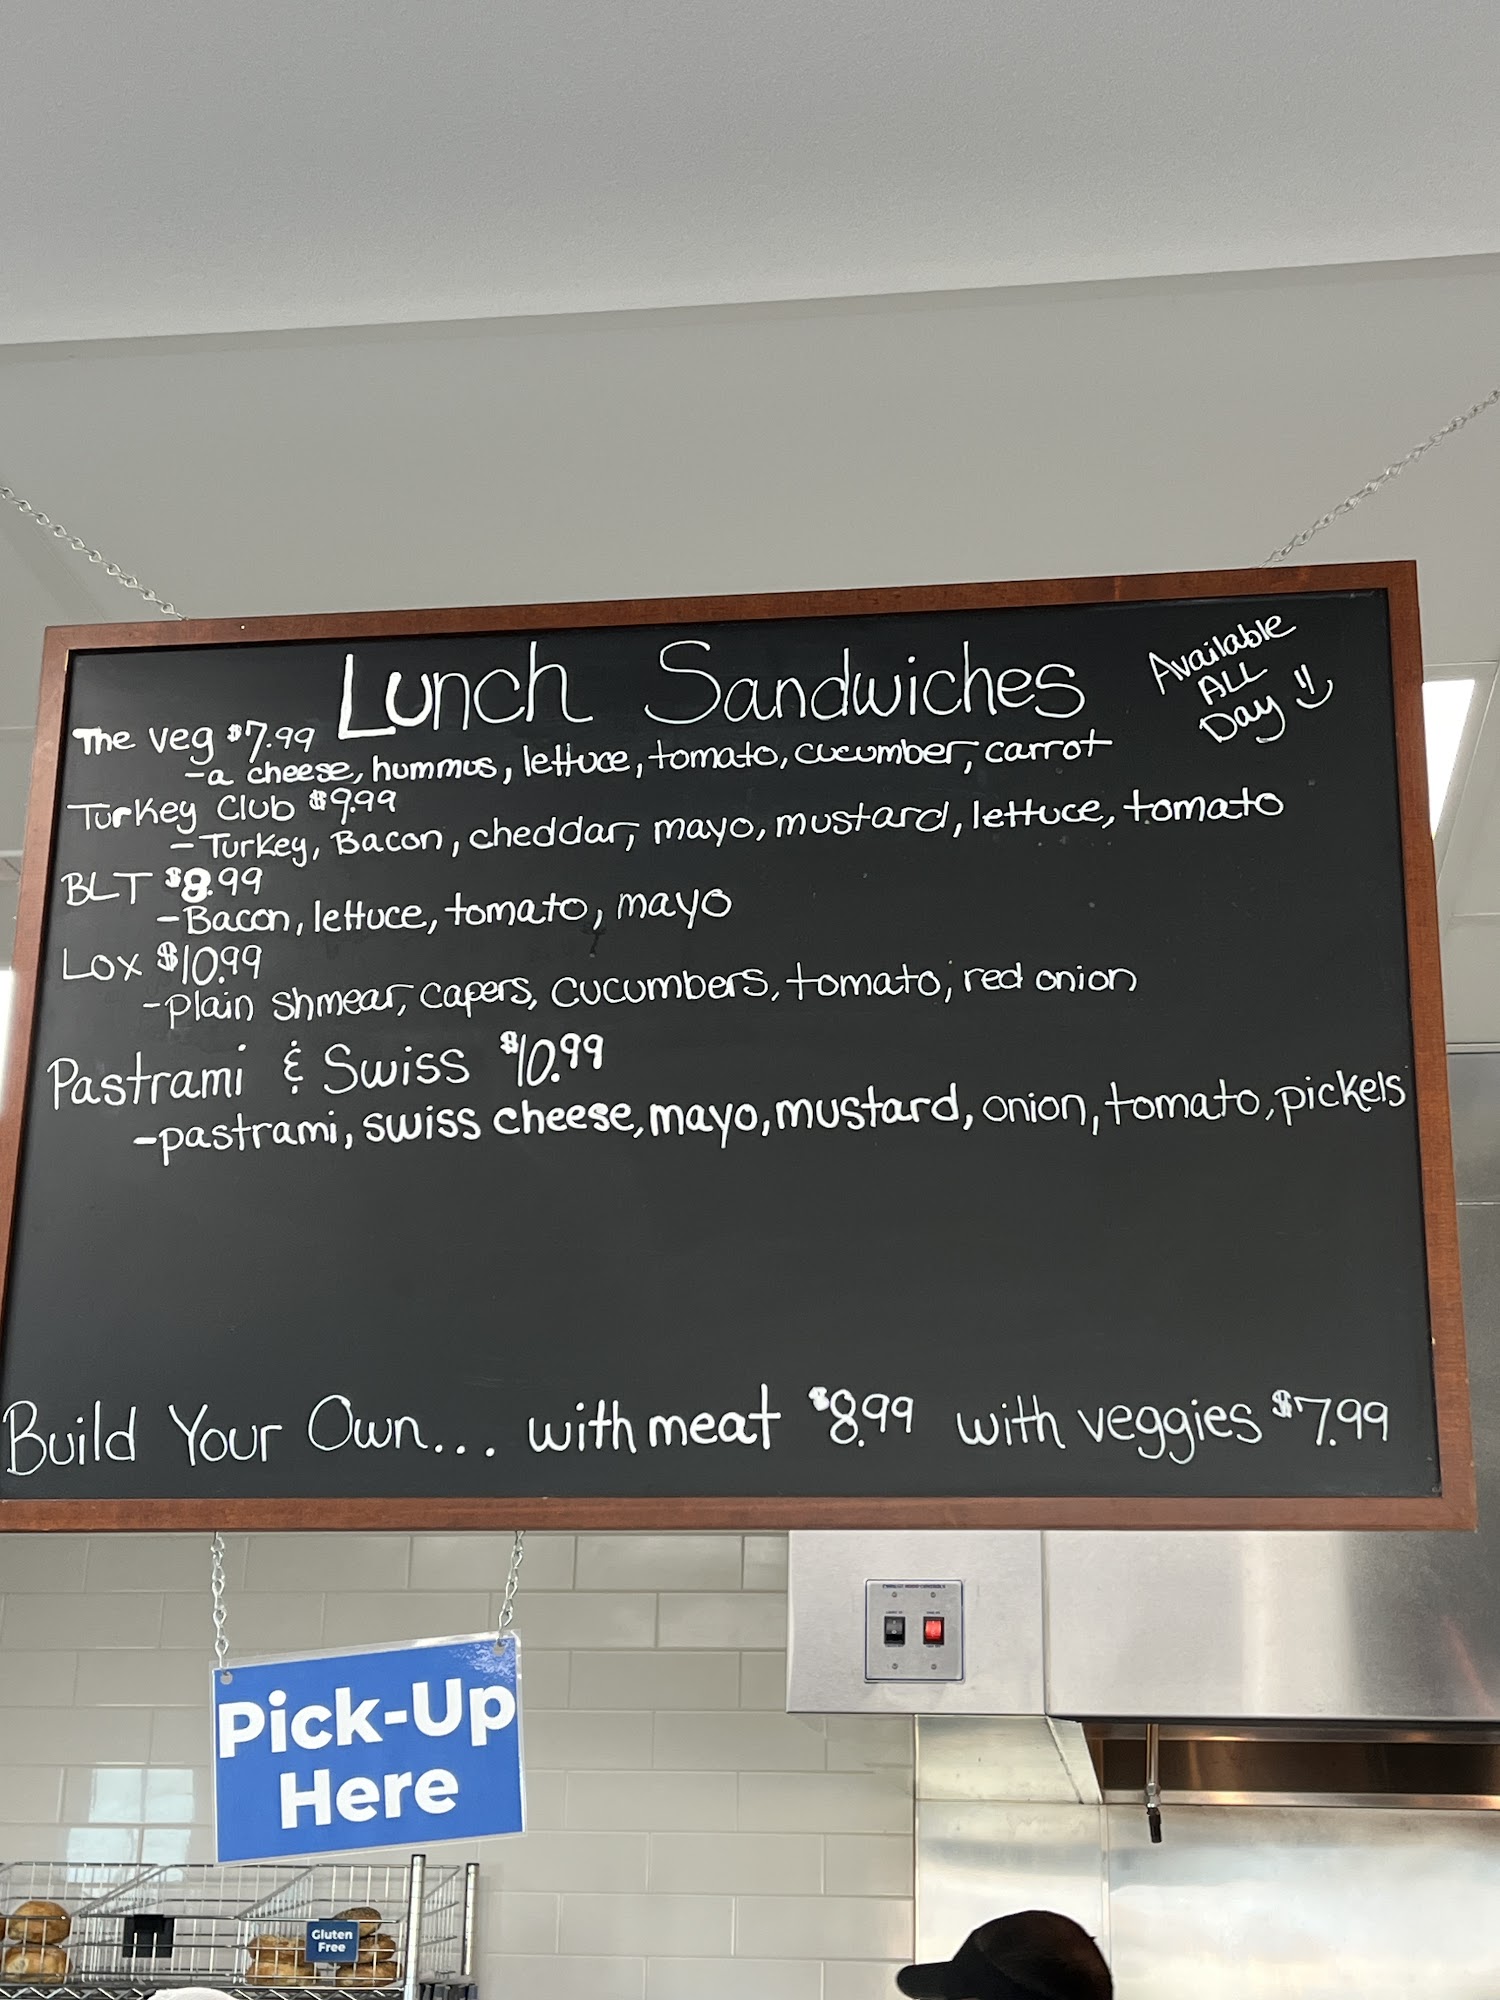 Lunch Sandwiches
Available
ALL
Day
The Veg $7.99
-a cheese, hummus, lettuce, tomato, cucumber, carrot
Turkey Club $9.99
- Turkey, Bacon, cheddar, mayo, mustard, lettuce, tomato
BLT $8.99
-Bacon, lettuce, tomato, mayo
Lox $10.99
-Plain shmear, capers, cucumbers, tomato, red onion
Pastrami & Swiss $10.99
-pastrami, swiss cheese, mayo, mustard, onion, tomato, pickels
Build Your Own... with meat $8.99 with veggies $7.99
Pick-Up
Here
Gluten
Free